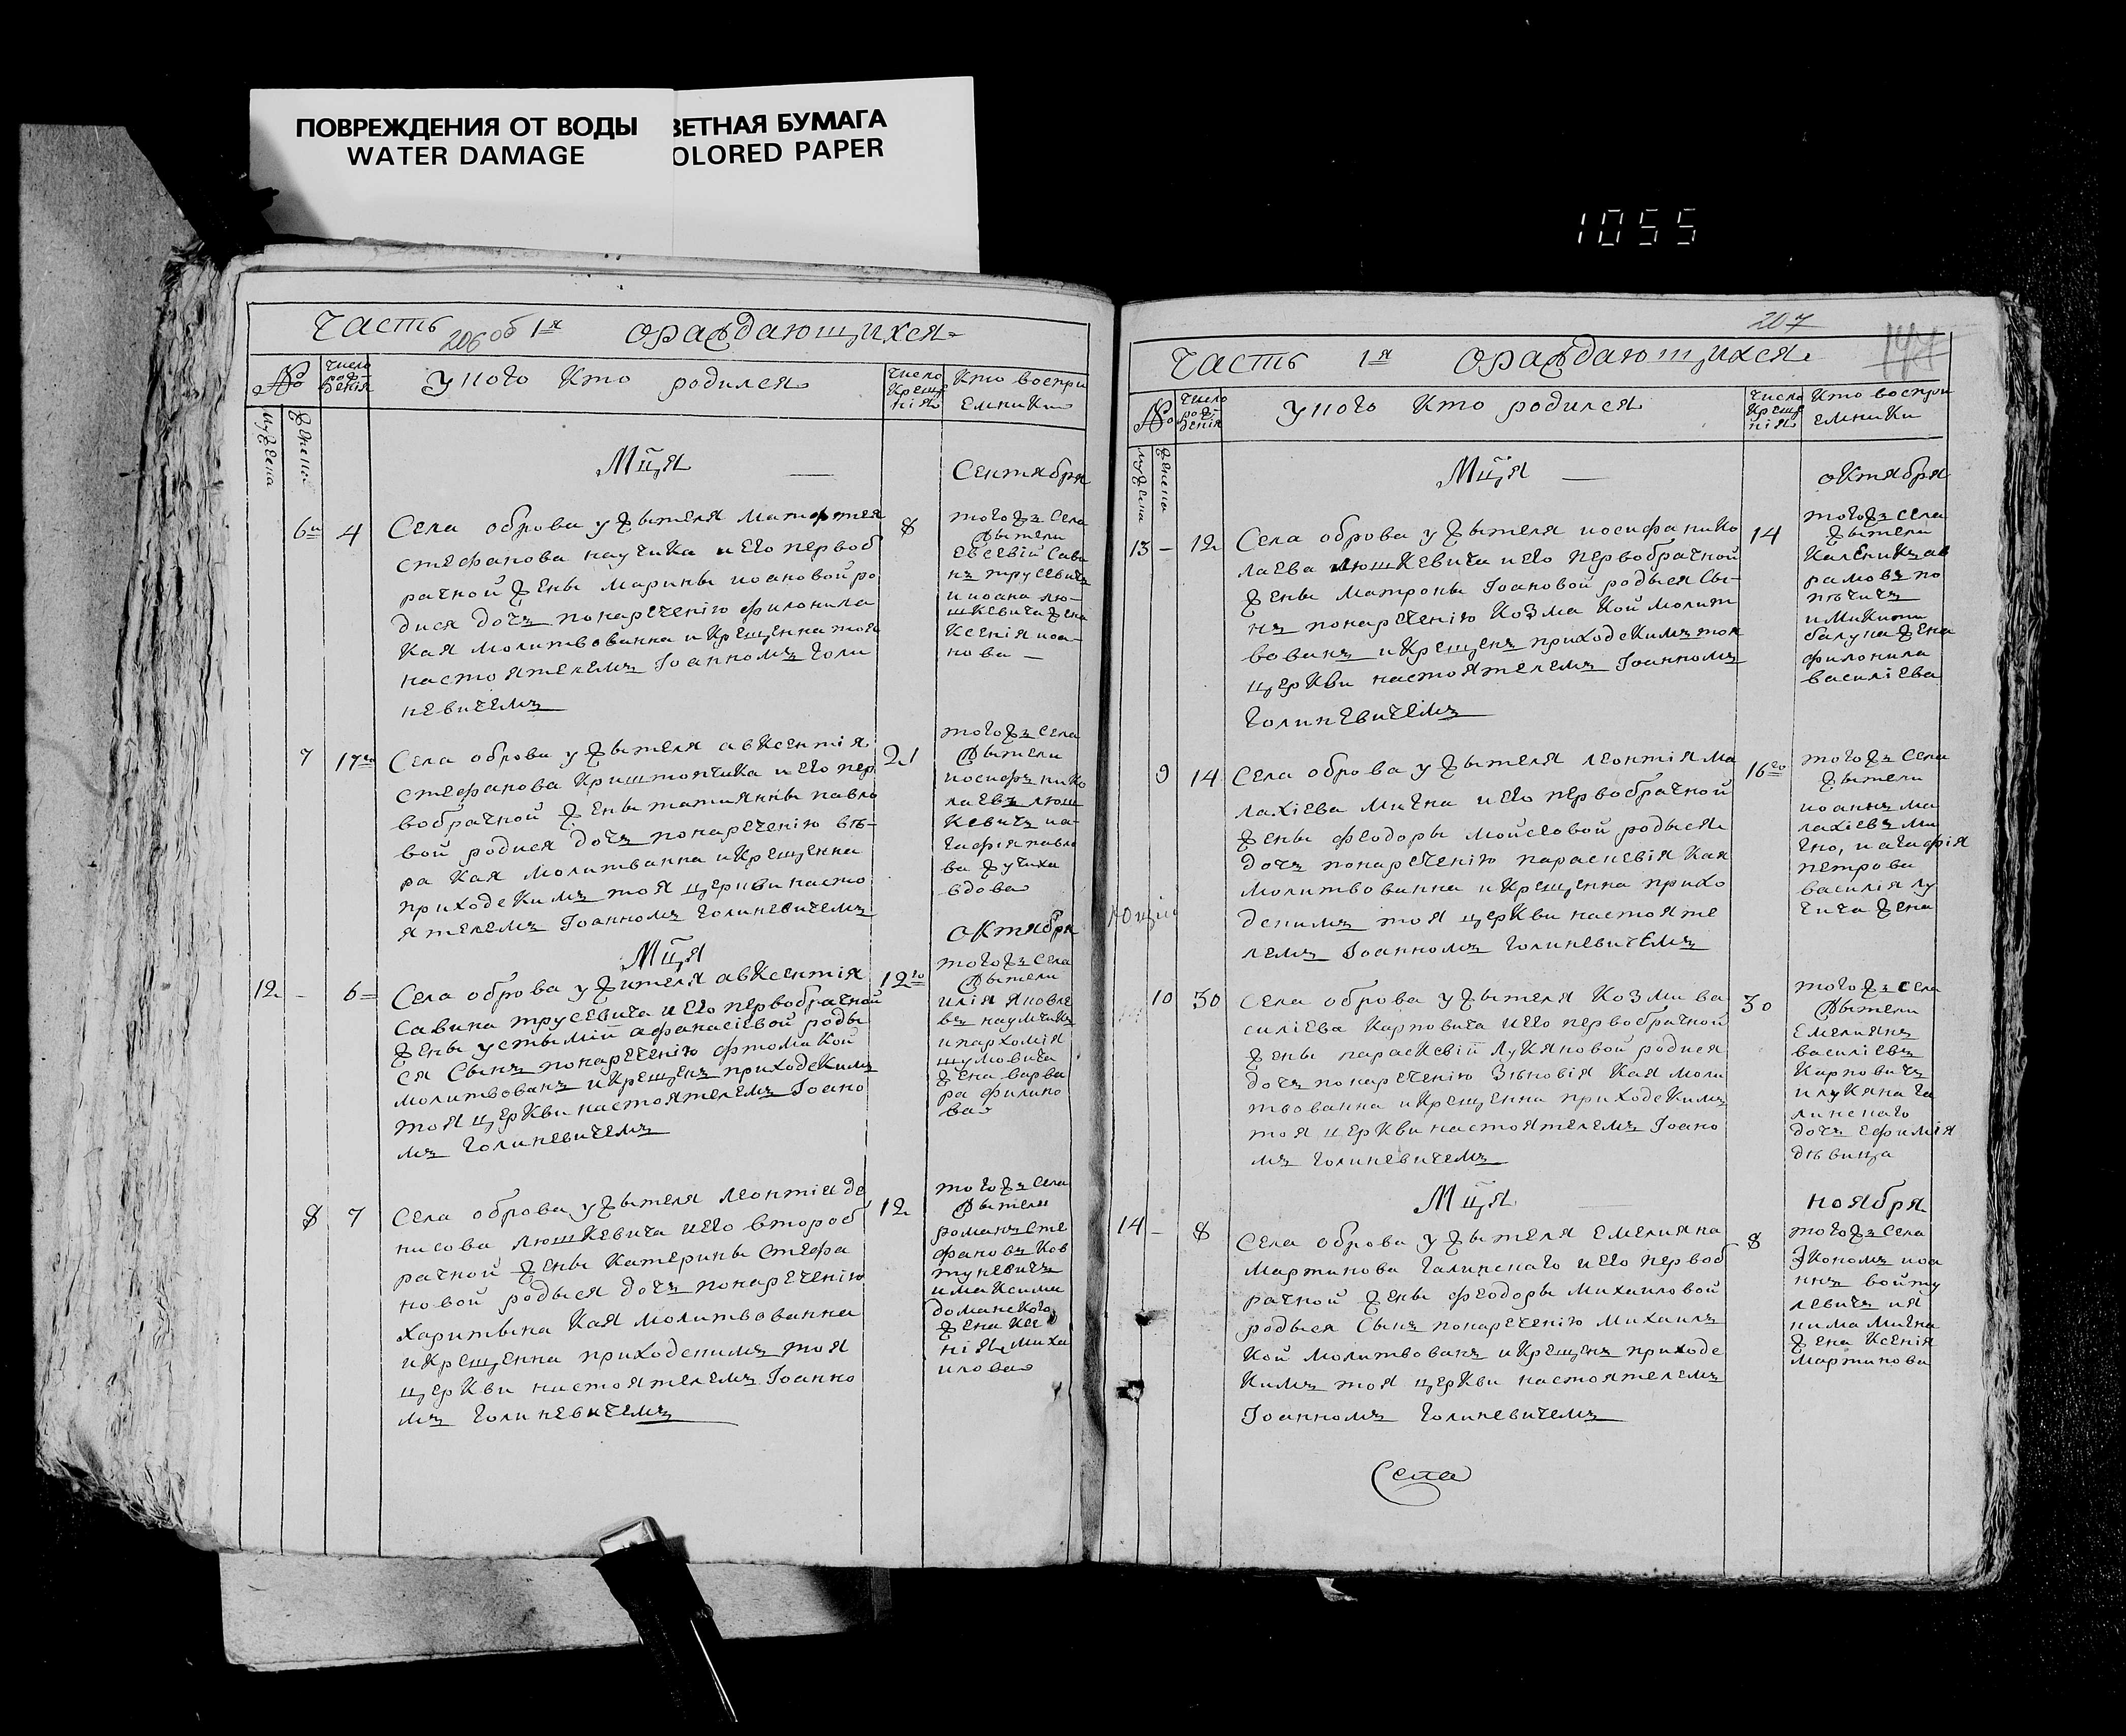 ПОВРЕЖДЕНИЯ ОТ ВОДЫ
WATER DAMAGE
ВЕТНАЯ БУМАГА
OLORED PAPER
1055
Часть 1я ораждающихся
206 об
№ Число рождения У кого кто родился Число крещения Кто восприемники
мужеска женска
Мця Сентября
6й 4 8
Села оброва у жытеля матфтея
стефанова научика и его первоб
рачной жены марины иоановой ро
дися дочъ понаречению филонила
кая молитвованна и крещенна тоя
настоятелемъ Іоанномъ Голи
невичемъ
тогожъ села
жытели
евсевій сави
нъ трусевичъ
и иоана лю-
шкевича жена
ксенія иоа-
нова —
7 17го 21
Села оброва у жытеля авксентія
стефанова криштопчика и его пер
вобрачной жены татиянны павло
вой родися дочъ понаречению вѣ-
ра кая молитванна и крещенна
приходскимъ тоя церкви насто
ятелемъ Іоанномъ Голиневичемъ
тогожъ села
жытели
иосифъ нико
лаевъ люш
кевичъ иа-
гафія павло
ва жучиха
вдова
Мця октября
12 - 6 12го
Села оброва у жителя авксентія
савина трусевича и его первобрачной
жены устыміи афанасіевой роды
ся сынъ понаречению фтома кой
молитвованъ и крещенъ приходскимъ
тоя церкви настоятелемъ Іоано
мъ Голиневичемъ
тогожъ села
жытели
илія яковле
въ наумчикъ
и пархомія
шумовича
жена варва
ра филипо
ва
8 7 12
Села оброва у жытеля леонтия де
нисова люшкевича и его второб
рачной жены катерины стефа
новой родыся дочъ понаречению
харитына кая молитвованна
и крещенна приходскимъ тоя
церкви настоятелемъ Іоанно
мъ Голиневичемъ
тогожъ села
жытели
романъ сте
фановъ ков
туневичъ
и максима
доманского
жена ксе
нія миха
илова
207
Часть 1я ораждающихся
№ Число рождения У кого кто родился Число крещения Кто восприемники
мужеска женска
Мця октября
13 - 12 14
Села оброва у жытеля иосифа нико
лаева люшкевича и его первобрачной
жены матроны Іоановой родыся сы-
нъ понаречению козма кой молит
вованъ и крещенъ приходскимъ тоя
церкви настоятелемъ Іоанномъ
Голиневичемъ
тогожъ села
жытели
каленикъ ав
рамовъ по
пѣчичъ
и микити
балуна жена
филонила
василіева
9 14 16го
Села оброва у жытеля леонтія ма
лахіева мигна и его первобрачной
жены феодоры мойсеовой родыся
дочъ понаречению параскевія кая
молитвованна и крещенна прихо
дскимъ тоя церкви настояте
лемъ Іоанномъ Голиневичемъ
тогожъ села
жытели
иоаннъ ма
лахіевъ ми
гно, и агафія
петрова
василія лу
чича жена
10 30 30
Села оброва у жытеля козми ва
силіева карповича и его первобрачной
жены параскевіи лукяновой родися
дочъ понаречению зѣновія кая моли
твованна и крещенна приходскимъ
тоя церкви настоятелемъ Іоано
мъ Голиневичемъ
тогожъ села
жытели
емелиянъ
василіевъ
карповичъ
и лукяна га
линскаго
дочъ ефимія
дѣвица
Мця ноября
14 - 8 8
Села оброва у жытеля емелияна
мартинова галинскаго и его первоб
рачной жены феодоры михаиловой
родыся сынъ понаречению михаилъ
кой молитвованъ и крещенъ приходс
кимъ тоя церкви настоятелемъ
Іоанномъ Голиневичемъ
тогожъ села
экономъ иоа
ннъ войту
левичъ и я
кима мигна
жена ксенія
мартинова
Села